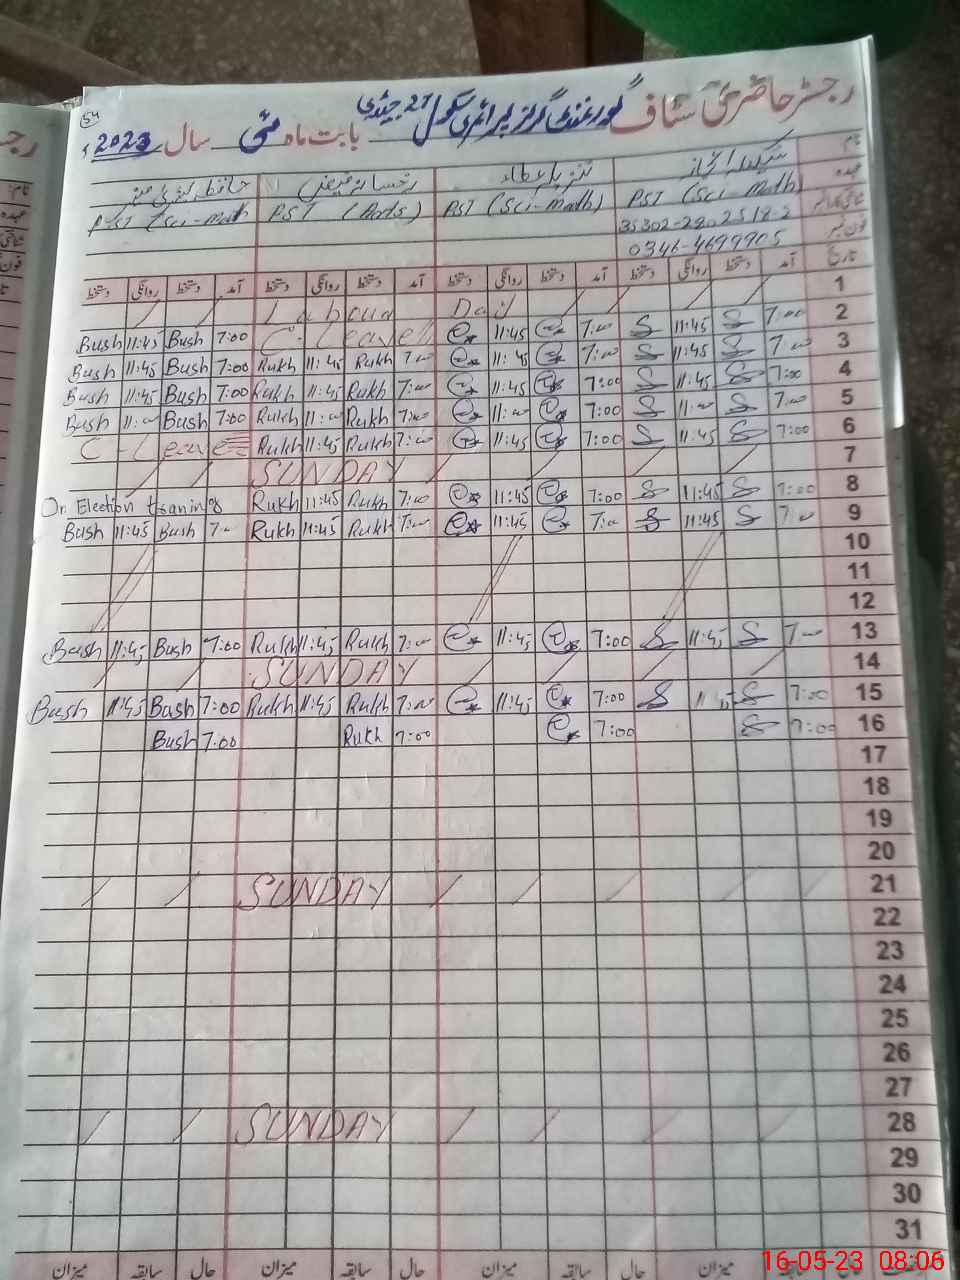 54
رجسٹر حاضری سٹاف گورنمنٹ گرلز پرائمری سکول 27 جیڈی بابت ماہ مئی سال 2023ء
نام
عہدہ PST (Sci-Math) PST (Sci-math) PST (Arts) PST (Sci-math
شناختی کارڈ نمبر 35302-2802518-2
فون نمبر 0346-4699905
تاریخ آمد دستخط روانگی دستخط آمد دستخط روانگی دستخط آمد دستخط روانگی دستخط آمد دستخط روانگی دستخط
Labour Day 1
Bush 11:45 Bush 7:00 C-Leave 11:45 7:00 11:45 7:00 2
Bush 11:45 Bush 7:00 Rukh 11:45 Rukh 7:00 11:45 7:00 11:45 7:00 3
Bush 11:45 Bush 7:00 Rukh 11:45 Rukh 7:00 11:45 7:00 11:45 7:00 4
Bush 11:00 Bush 7:00 Rukh 11:00 Rukh 7:00 11:00 7:00 11:00 7:00 5
C-Leave Rukh 11:45 Rukh 7:00 11:45 7:00 11:45 7:00 6
SUNDAY 7
On Election traning Rukh 11:45 Rukh 7:00 11:45 7:00 11:45 7:00 8
Bush 11:45 Bush 7:00 Rukh 11:45 Rukh 7:00 11:45 7:00 11:45 7:00 9
10
11
12
Bush 11:45 Bush 7:00 Rukh 11:45 Rukh 7:00 11:45 7:00 11:45 7:00 13
SUNDAY 14
Bush 11:45 Bush 7:00 Rukh 11:45 Rukh 7:00 11:45 7:00 11:45 7:00 15
Bush 7:00 Rukh 7:00 7:00 7:00 16
17
18
19
20
SUNDAY 21
22
23
24
25
26
27
SUNDAY 28
29
30
31
حال سابقہ میزان حال سابقہ میزان حال سابقہ میزان
16-05-23 08:06